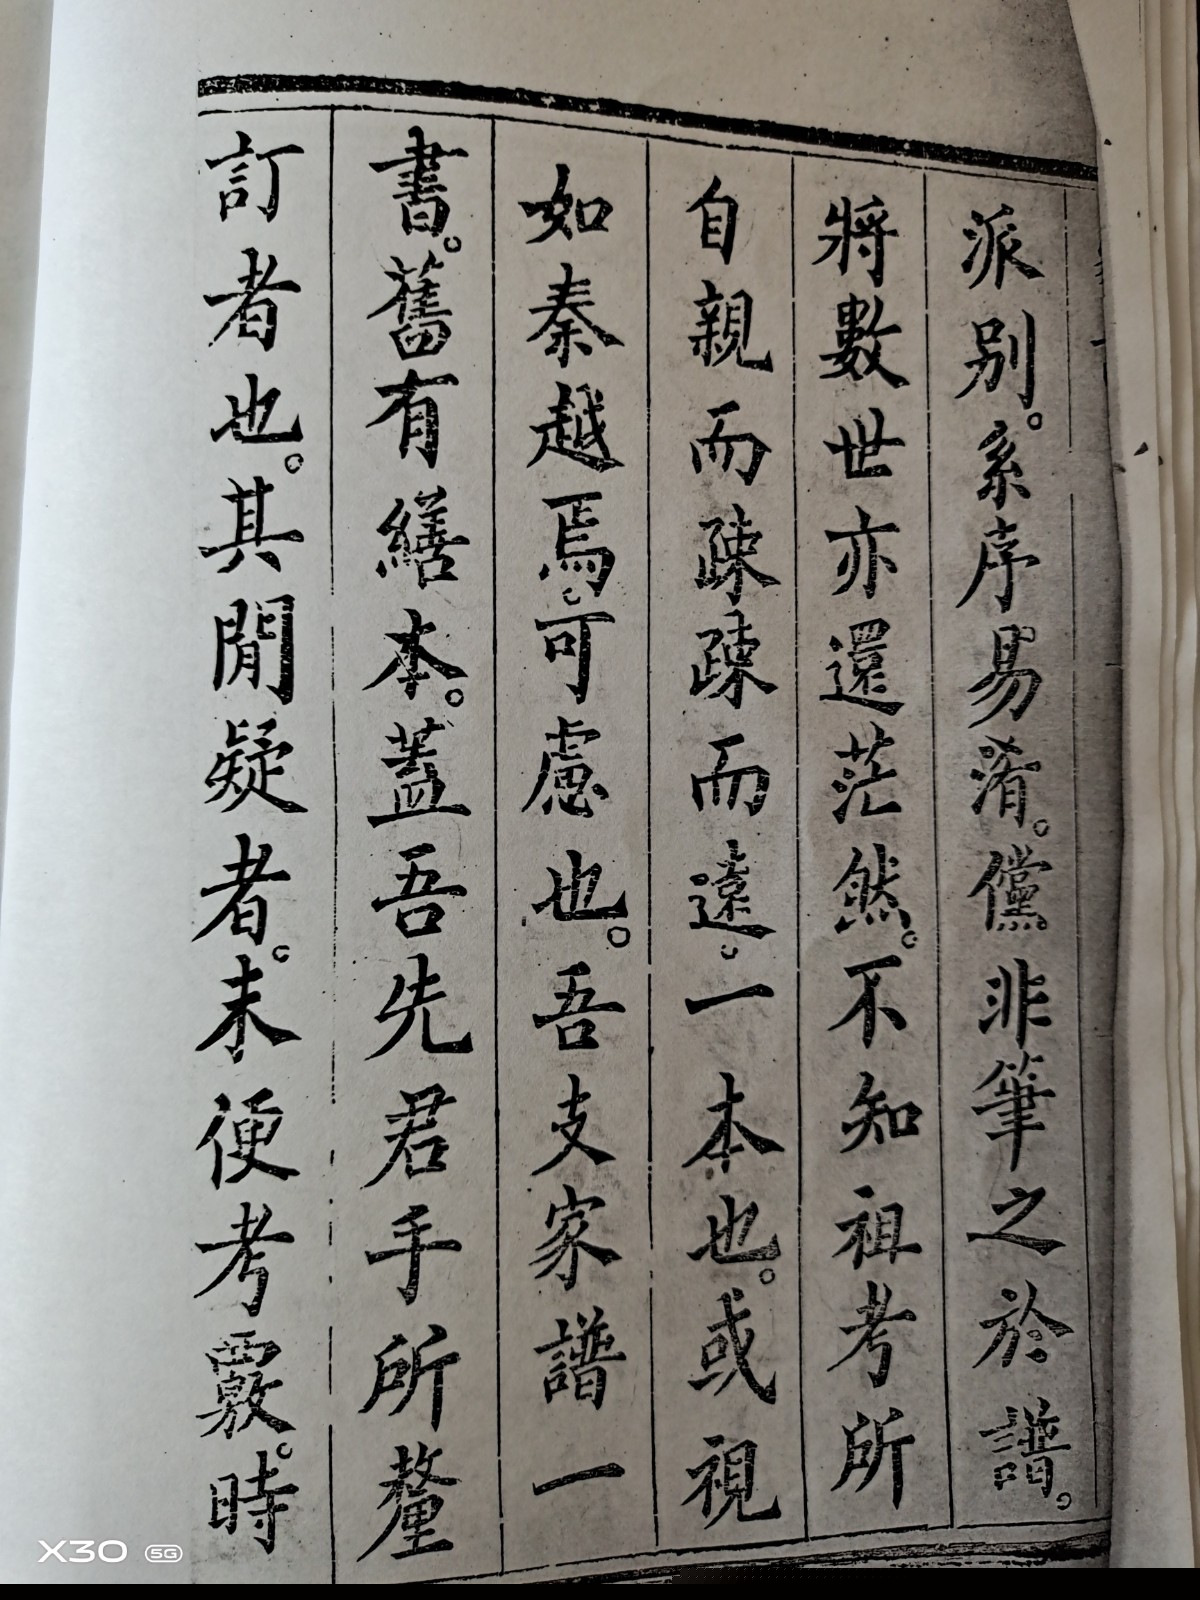 派别。系序易淆。儻非筆之於譜。
將數世亦還茫然。不知祖考所
自親而疎疎而遠。一本也。或視
如秦越焉。可慮也。吾支家譜一
書。舊有繕本。蓋吾先君手所釐
訂者也。其閒疑者。未便考覈。時
X30 5G